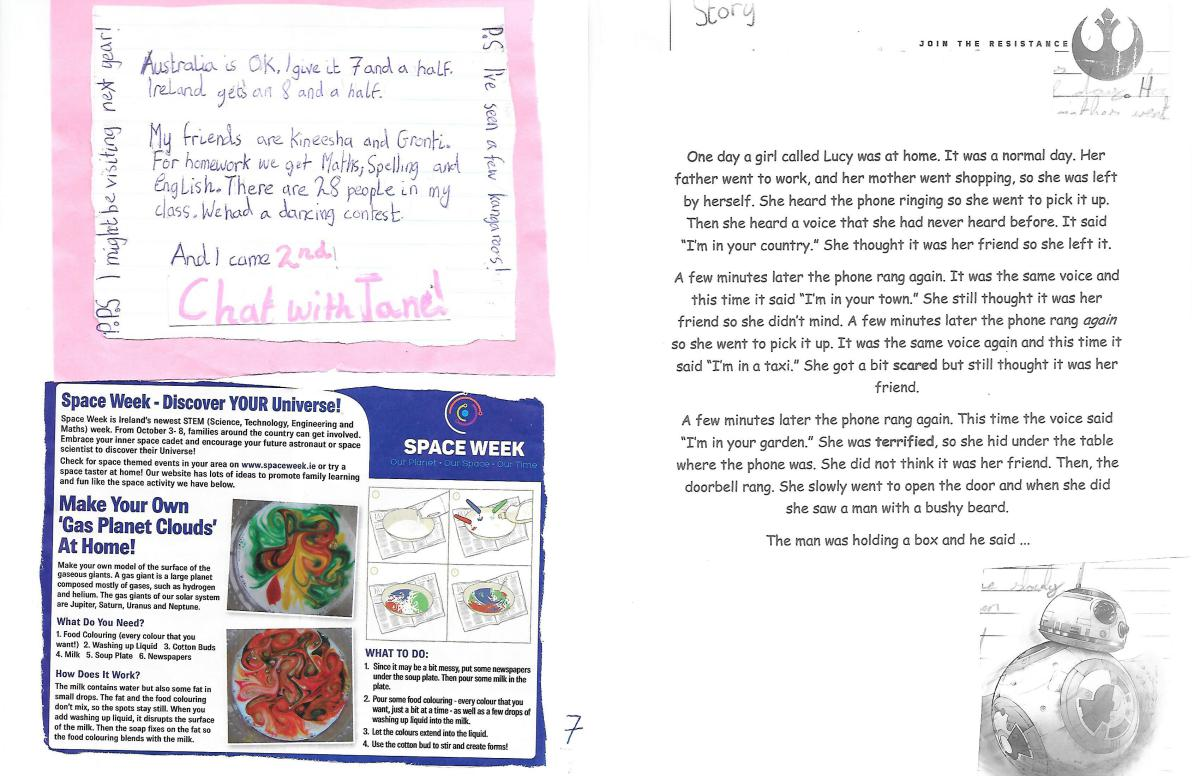 Australia is OK. I give it 7 and a half.
Ireland gets an 8 and a half.
My friends are Kneesha and Gronti.
For homework we get Maths, Spelling and
English. There are 28 people in my
class. We had a dancing contest.
And I came 2nd!
Chat with Jane!
P.S I've seen a few kangaroos!
P.P.S I might be visiting next year!
Space Week - Discover YOUR Universe!
Space Week is Ireland's newest STEM (Science, Technology, Engineering and
Maths) week. From October 3- 8, families around the country can get involved.
Embrace your inner space cadet and encourage your future astronaut or space
scientist to discover their Universe!
Check for space themed events in your area on www.spaceweek.ie or try a
space taster at home! Our website has lots of ideas to promote family learning
and fun like the space activity we have below.
SPACE WEEK
Our Planet - Our Space - Our Time
Make Your Own
'Gas Planet Clouds'
At Home!
Make your own model of the surface of the
gaseous giants. A gas giant is a large planet
composed mostly of gases, such as hydrogen
and helium. The gas giants of our solar system
are Jupiter, Saturn, Uranus and Neptune.
What Do You Need?
1. Food Colouring (every colour that you
want!) 2. Washing up Liquid 3. Cotton Buds
4. Milk 5. Soup Plate 6. Newspapers
How Does It Work?
The milk contains water but also some fat in
small drops. The fat and the food colouring
don't mix, so the spots stay still. When you
add washing up liquid, it disrupts the surface
of the milk. Then the soap fixes on the fat so
the food colouring blends with the milk.
WHAT TO DO:
1. Since it may be a bit messy, put some newspapers
under the soup plate. Then pour some milk in the
plate.
2. Pour some food colouring - every colour that you
want, just a bit at a time - as well as a few drops of
washing up liquid into the milk.
3. Let the colours extend into the liquid.
4. Use the cotton bud to stir and create forms!
7
Story
JOIN THE RESISTANCE
H
went
One day a girl called Lucy was at home. It was a normal day. Her
father went to work, and her mother went shopping, so she was left
by herself. She heard the phone ringing so she went to pick it up.
Then she heard a voice that she had never heard before. It said
“I'm in your country.” She thought it was her friend so she left it.
A few minutes later the phone rang again. It was the same voice and
this time it said “I'm in your town.” She still thought it was her
friend so she didn't mind. A few minutes later the phone rang again
so she went to pick it up. It was the same voice again and this time it
said “I'm in a taxi.” She got a bit scared but still thought it was her
friend.
A few minutes later the phone rang again. This time the voice said
“I'm in your garden.” She was terrified, so she hid under the table
where the phone was. She did not think it was her friend. Then, the
doorbell rang. She slowly went to open the door and when she did
she saw a man with a bushy beard.
The man was holding a box and he said ...